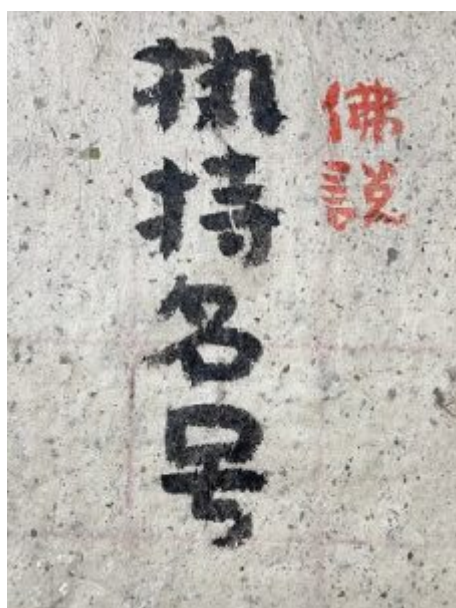 佛説
执持名号